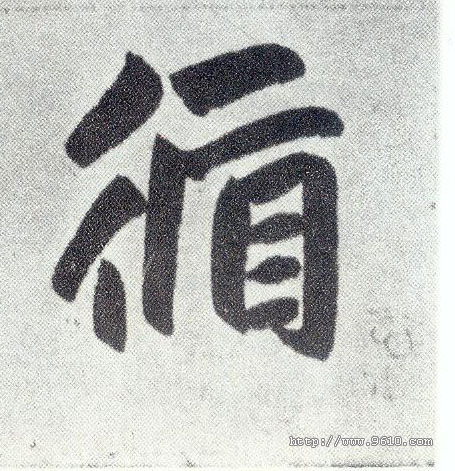 循
http://www.9610.com